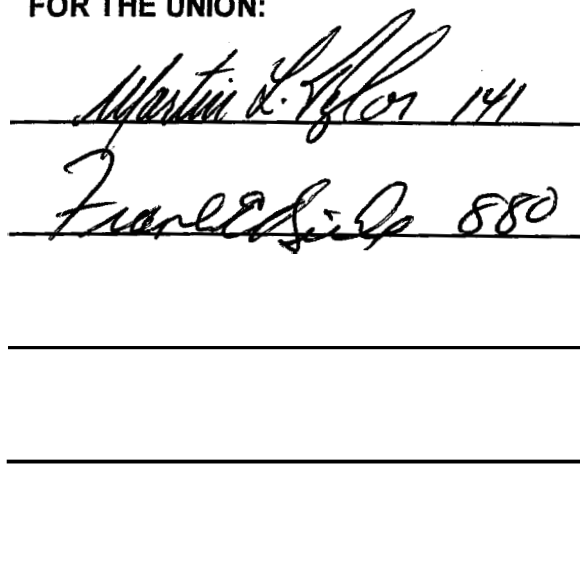 FOR THE UNION:
Martin L. Tylor 141
Frank E 880